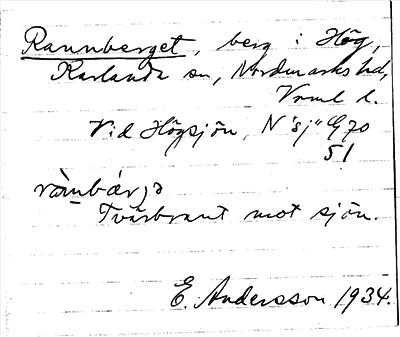 Rannberget, berg i Hög,
Karlanda sn, Nordmarks hd,
Vrml l.
Vid Högsjön, N "sj" G 70
51
rànbárjə
Tvärbrant mot sjön.
E. Andersson 1934.